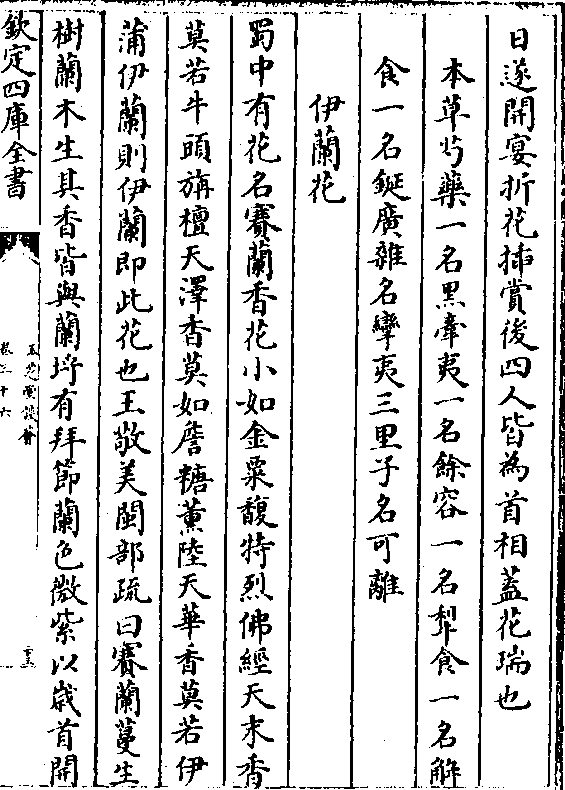 日遂開宴折花揷賞後四人皆為首相蓋花瑞也
本草芍藥一名黒牽夷一名餘容一名犂食一名解
食一名鋋廣雜名攣夷三里子名可離
伊蘭花
蜀中有花名賽蘭香花小如金粟馥特烈佛經天末香
莫若牛頭旃檀天澤香莫如詹糖薰陸天華香莫若伊
蒲伊蘭則伊蘭即此花也王敬美閩部疏曰賽蘭蔓生
樹蘭木生其香皆與蘭埓有拜節蘭色微紫以歳首開
欽定四庫全書
卷三十六